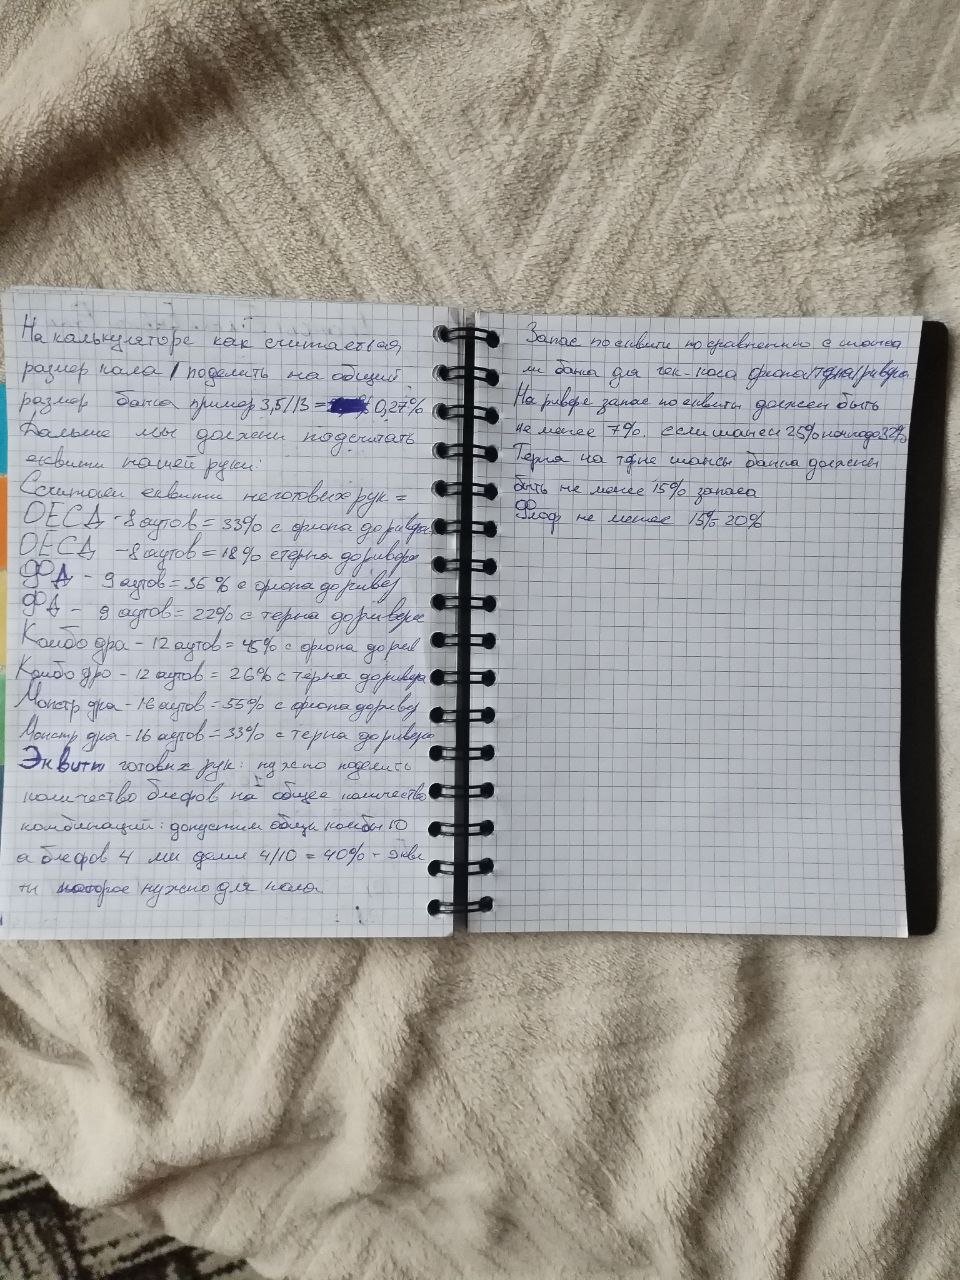 На калькуляторе как считается
размер кола / поделить на общий
размер банка пример 3,5/13 = 0,27%
Дальше мы должны подсчитать
еквити нашей руки:
Считаем еквити не готовых рук =
ОЕСД - 8 аутов = 33% с флопа до ривера
ОЕСД - 8 аутов = 18% с терна до ривера
ФД - 9 аутов = 36% с флопа до ривер
ФД - 9 аутов = 22% с терна до ривера
Комбо дра - 12 аутов = 45% с флопа до рив
Комбо дро - 12 аутов = 26% с терна до ривера
Монстр дра - 16 аутов = 55% с флопа до ривер
Монстр дра - 16 аутов = 33% с терна до ривера
Эквити готовых рук: нужно поделить
количество блефов на общее количество
комбинаций: допустим общи комбы 10
а блефов 4 ми делим 4/10 = 40% - экви
ти которое нужно для кола
Запас по еквити по сравнению с шанса
ми банка для чек-кола флопа/терна/ривера
На ривере запас по еквити должен быть
не менее 7%. если шансы 25% надо 32%
Терна на терне шансы банка должны
быть не менее 15% запаса
Флоф не менее 15% 20%